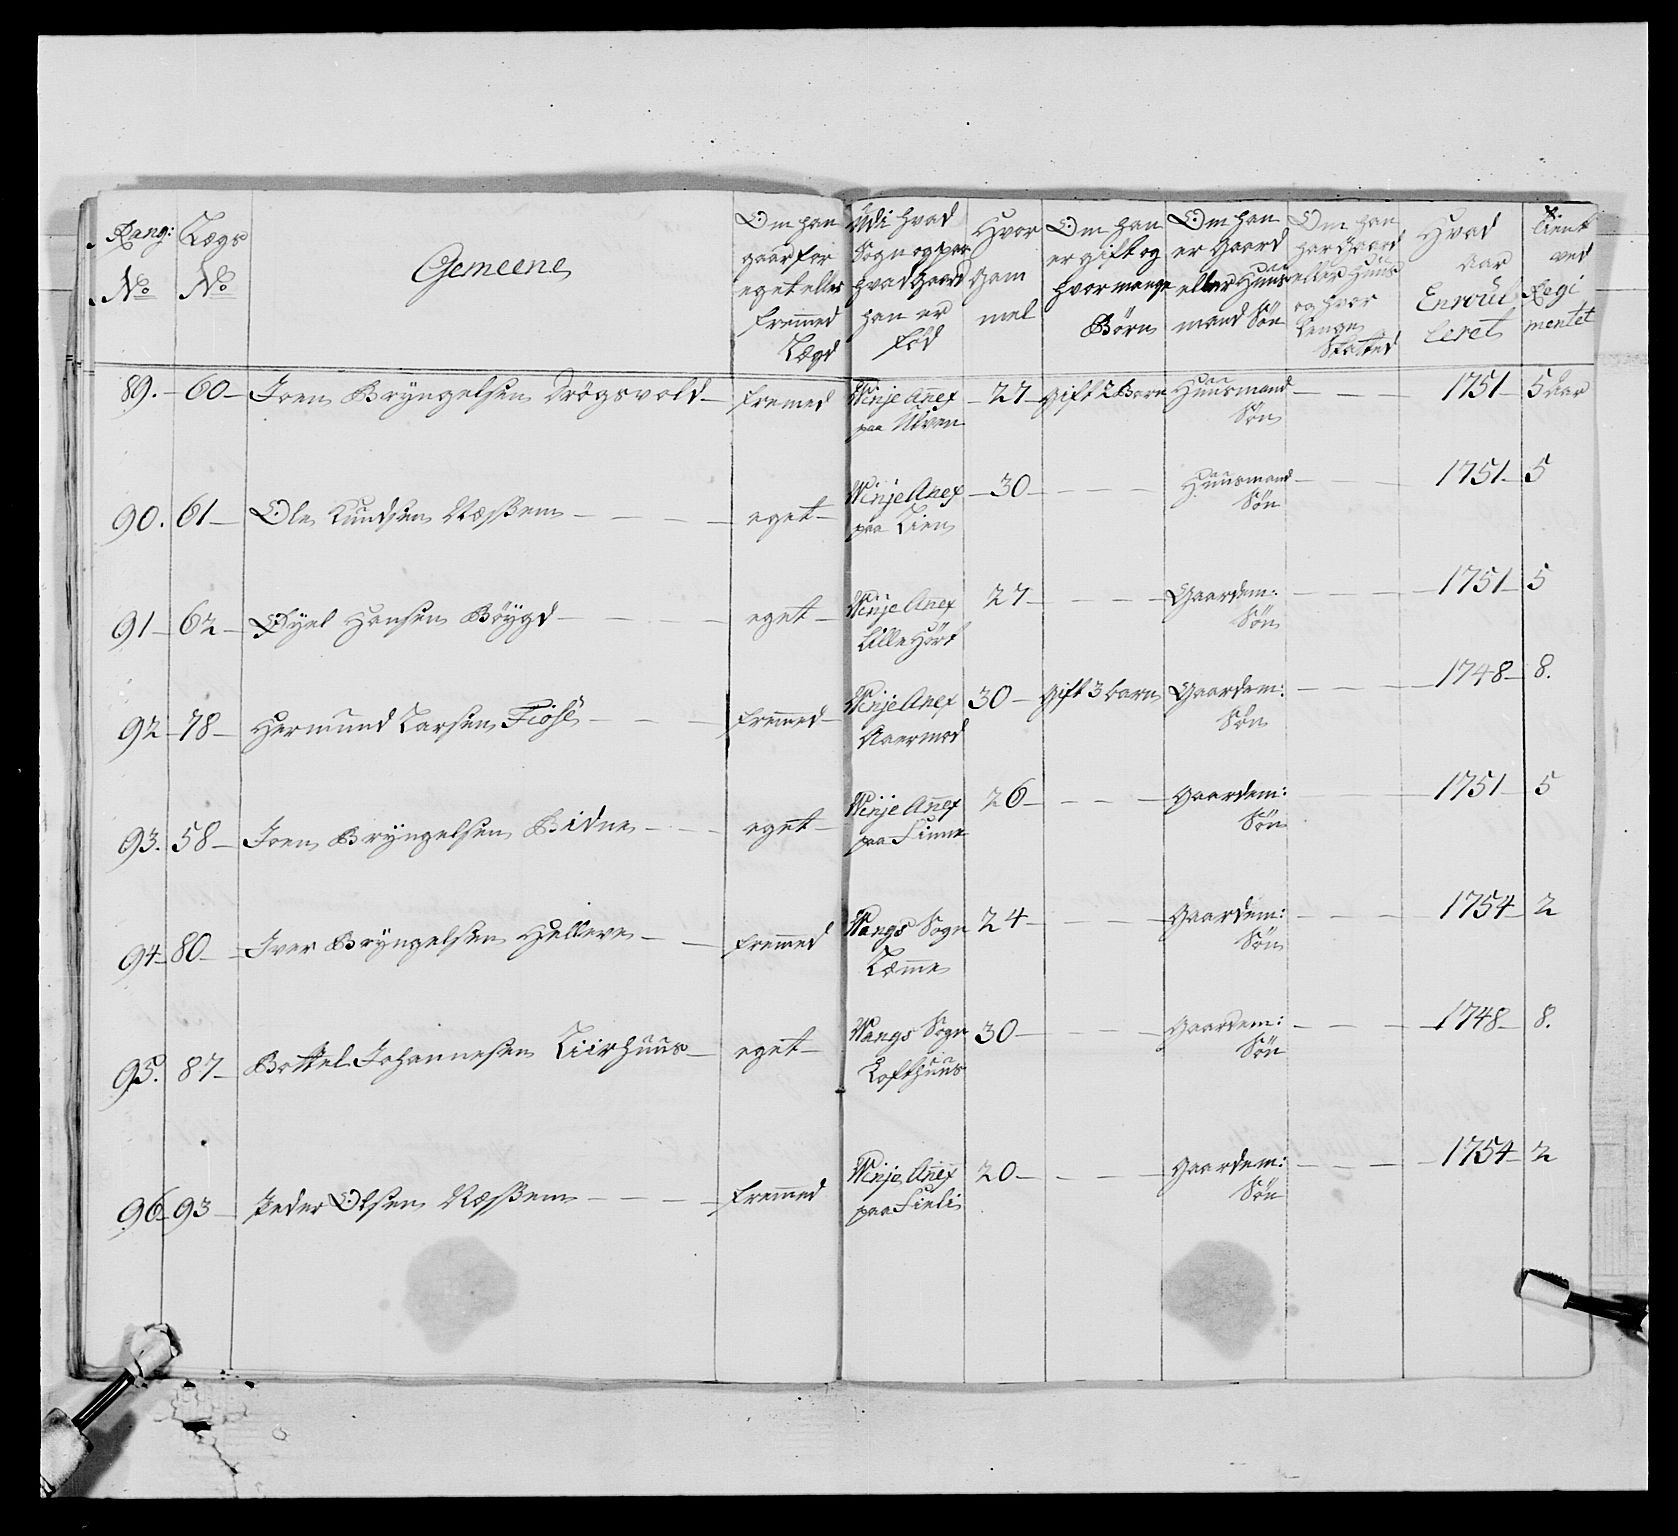 Rang: No
Lægs No
Gemeene
Om han gaar for eget eller fremmed Lægd
Udi hvad Sogn og paa hvad Gaard han er fød
Hvor Gam mel
Om han er gift og hvor mange Børn
Om han er Gaard eller Huus mand Søn
Om han har Gaard eller Huus og hvor Lenge
Hvad Aar Enroul leret
Tient ved Regi mentet
89. – 60 – Joen Bryngelsen Drögsvold – fremed Winje Anex paa Ulven – 27 – gift 2 Barn Huusmand Søn – – – 1751 – 5 Aar
90. 61 – Ole Knudsen Næssem – – – eget – Winje Anex paa Lien – 30 – – – – Huusmand Søn – – – 1751 – 5
91 – 62 – Eyel Hansen Böygd – – – eget – Winje Anex Lille Hörf 27 – – – – Gaardem: Søn – – – 1751 – 5
92 – 78 – Hermund Larsen Fiose – – – fremmed – Winje Anex Aaermod 30 – gift 3 barn Gaardem: Søn – – – 1748 – 8.
93. 58 – Joen Bryngelsen Bidne – – – eget – Winje Anex paa Finne 26 – – – – Gaardem: Søn 1751 – 5
94 – 80 – Iver Bryngelsen Hellere – – fremmed Wangs Sogn Læmme 24 – – – – Gaardem: Søn – – – 1754 – 2
95. 87 – Bottel Johannesen Liirhuus – eget – Wangs Sogn Lofthuus 30 – – – – Gaardem: Søn – – – 1748 – 8.
96 – 93 – Peder Olsen Næssem – – – – fremmed Winje Anex paa Fieli 20 – – – – Gaardem: Søn – – – 1754 – 2